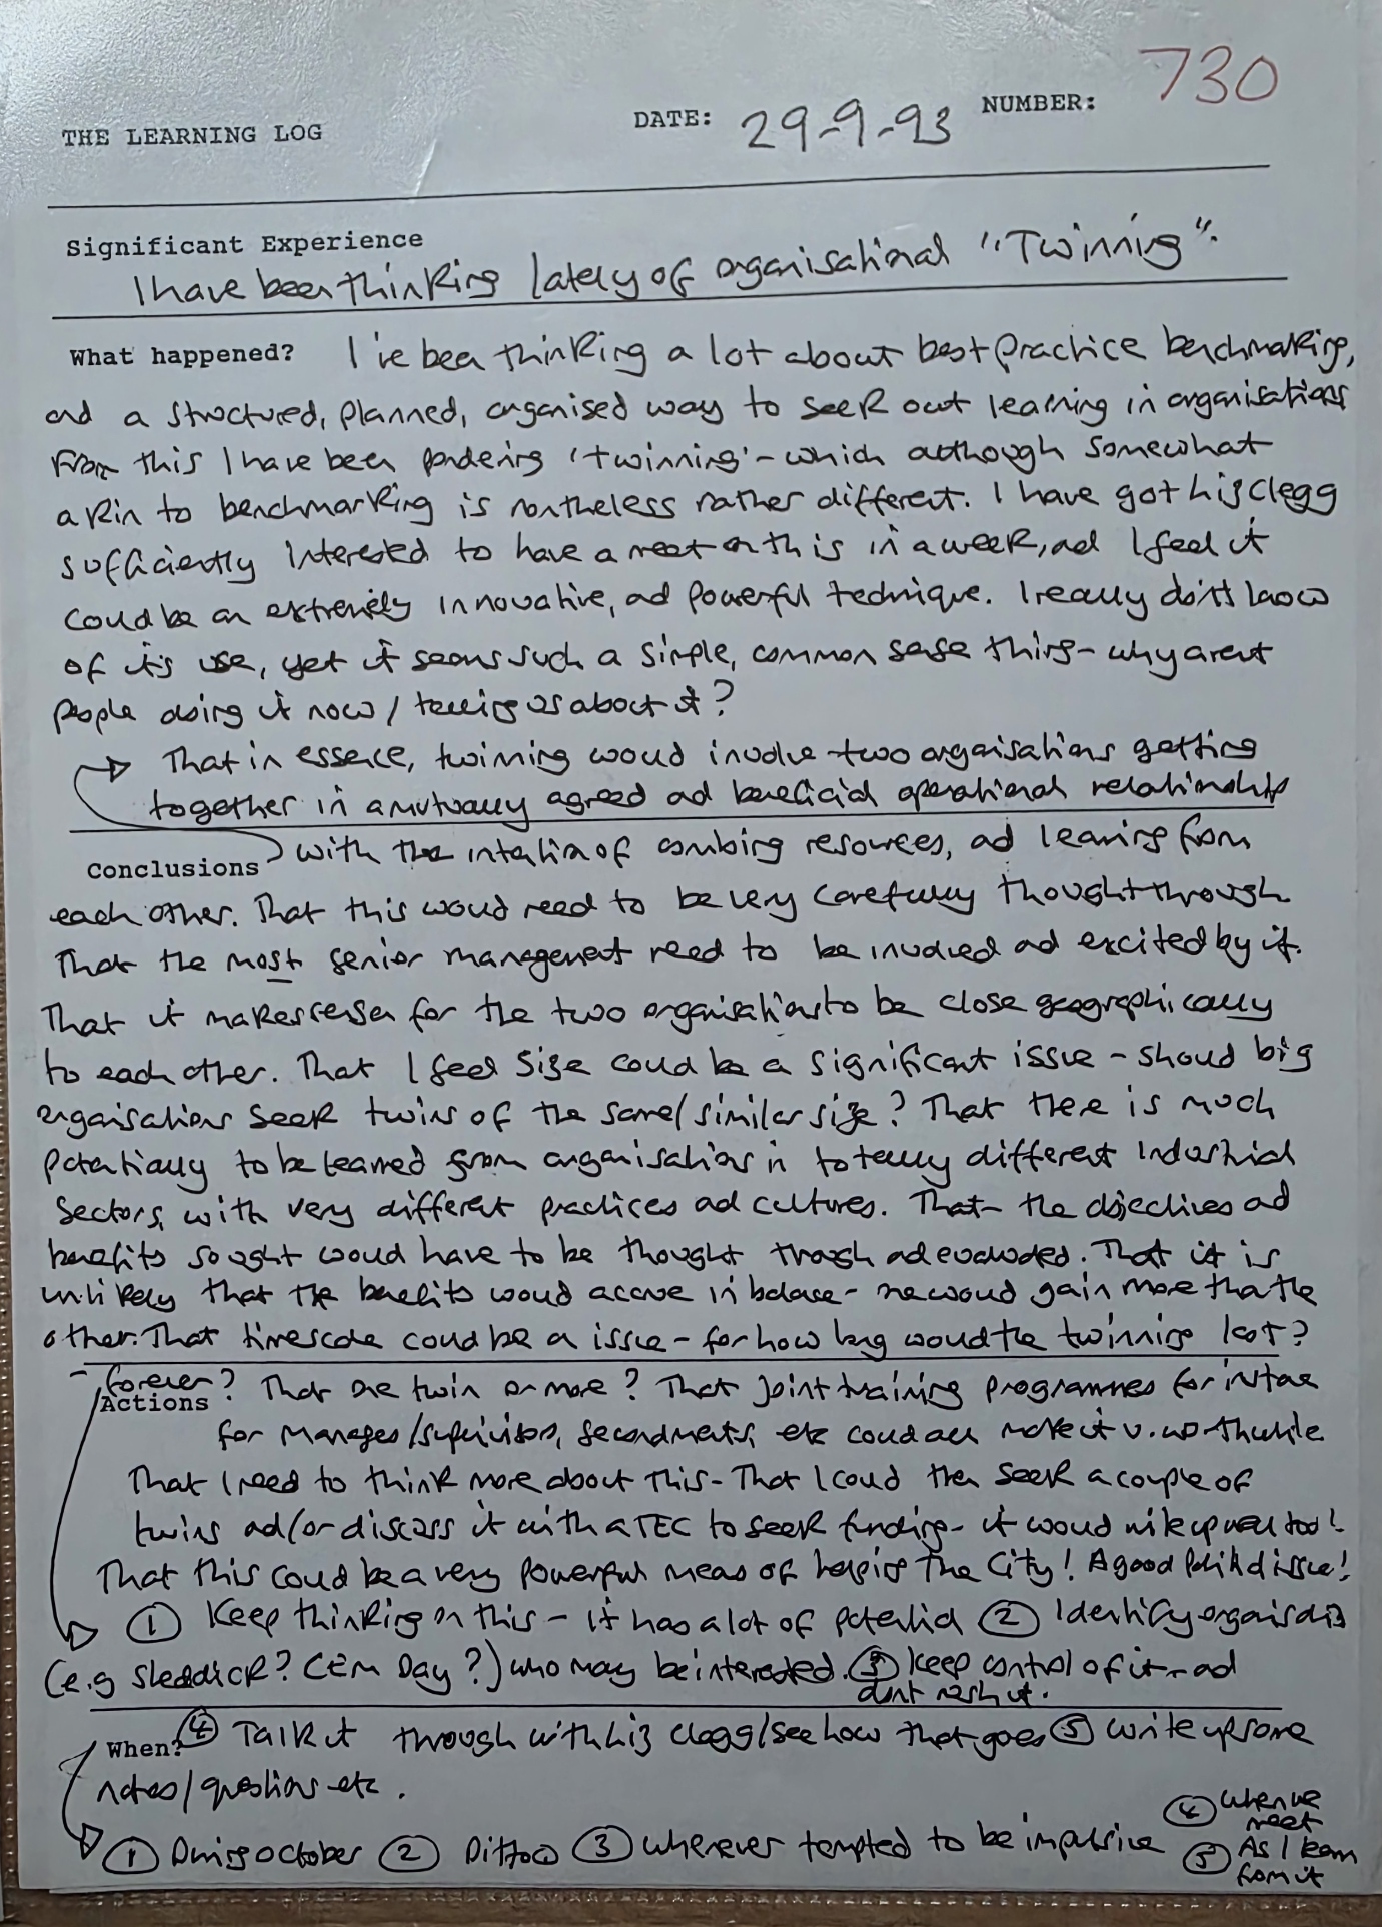 730
THE LEARNING LOG DATE: 29-9-93 NUMBER:
Significant Experience
I have been thinking lately of organisational "Twinning".
What happened? I've been thinking a lot about best practice benchmarking,
and a structured, planned, organised way to seek out learning in organisations
From this I have been pondering 'twinning' - which although somewhat
akin to benchmarking is nontheless rather different. I have got Liz Clegg
sufficiently interested to have a meet on this in a week, and I feel it
could be an extremely innovative, and powerful technique. I really don't know
of it's use, yet it seems such a simple, common sense thing - why arent
people doing it now / telling us about it?
That in essence, twinning would involve two organisations getting
together in a mutually agreed and beneficial operational relationship
Conclusions with the intention of combing resources, and learning from
each other. That this would need to be very carefully thought through
That the most senior management need to be involved and excited by it.
That it makes sense for the two organisations to be close geographically
to each other. That I feel size could be a significant issue - should big
organisations seek twins of the same/similar size? That there is much
potentially to be learned from organisations in totally different industrial
sectors, with very different practices and cultures. That - the objectives and
benefits sought would have to be thought through and evaluated. That it is
unlikely that the benefits would accrue in balance - one would gain more than the
other. That timescale could be a issue - for how long would the twinning last?
- forever? That one twin or more? That joint training programmes for
Actions
for Managers/supervisors, secondments, etc could all make it v. worthwhile
That I need to think more about this - That I could then seek a couple of
twins and/or discuss it with a TEC to seek funding - it would up well too!
That this could be a very powerful means of helping The City! A good political issue!
① Keep thinking on this - it has a lot of potential ② Identify organisations
(e.g Sleddick? CEM Day?) who may be interested. ③ Keep control of it - and
dont rush it.
When? ④ Talk it through with Liz Clegg/see how that goes ⑤ write up some
notes/questions etc.
① During October ② Ditto ③ Wherever tempted to be impulsive ④ When we
meet
⑤ As I learn
from it